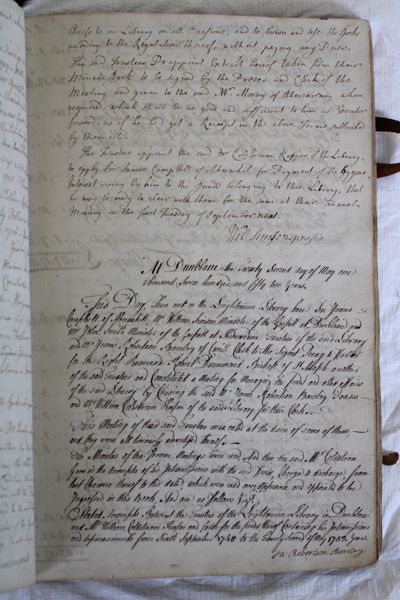 Access to our Library on all Occasions, and to borrow and use the Books
according to the Regulations thereof without paying any Dues.
The said Trustees Do appoint Extract hereof taken from their
Minute Book to be signed by the Preses and Clerk of the
Meeting and given to the said Mr. Moray of Abercairney when
required, which shall be as good and sufficient to him as
if he had got a Receipt in the above Terms subscribed
by them all.
The Trustees appoint the said Mr Coldstream Keeper of the Library
to apply Sir James Campbell of Aberuchill for Payment of the Bygone
Interest owing by him to the fund belonging to this Library, that
he may be ready to clear with them for the same at their Annual
Meeting on the first Tuesday of September next.
Will Simson preses
At Dunblane the Twenty Second day of May one
thousand seven hundred and fifty two years.
This Day There met in the Leightonian Library here Sir James
Campbell of Aberuchill, Mr William Simson Minister of the Gospel at Dunblane and
Mr John Smith Minister of the Gospel at Trustees of the said Library
and Mr James Robertson Barclay of Clerk to the Signet Proxy &
for the Right Reverend Robert Drummond Bishop of St Asaph
of the said Trustees and Constituted a Meeting for Managing the funds and other affairs
of the said Library by Chusing the said Mr James Robertson Barclay Preses
and Mr William Coldstream of the said Library for their Clerk.
This Meeting of the said Trustees was called at the desire of some of them,
and they were all timeously advertised thereof.
The Minutes of the former Meetings were read And then the said Mr Coldstream
Gave in the Accompts of his Intromissions with the said
last thereof to this date which were read over, approven and appointed to be
Ingrossed in this Book And are as follows Vizt
Stated Accompts Betwixt the Trustees of the Leightonian Library in Dunblane
and Mr William Coldstream and for the funds thereof Containing his Intromissions
and Depursements from Ninth September 1748 to the Twenty Second of May 1752 Years.
Ja: Robertson Barclay